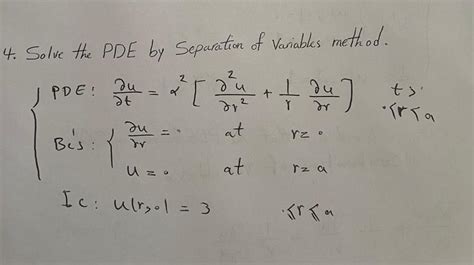 4. Solve the PDE by Separation of Variables method.
PDE: ∂u/∂t = α² [ ∂²u/∂r² + 1/r ∂u/∂r ] t >
0 ≤ r ≤ a
BC's: { ∂u/∂r = 0 at r = 0
u = 0 at r = a
Ic: u(r,0) = 3 0 ≤ r ≤ a